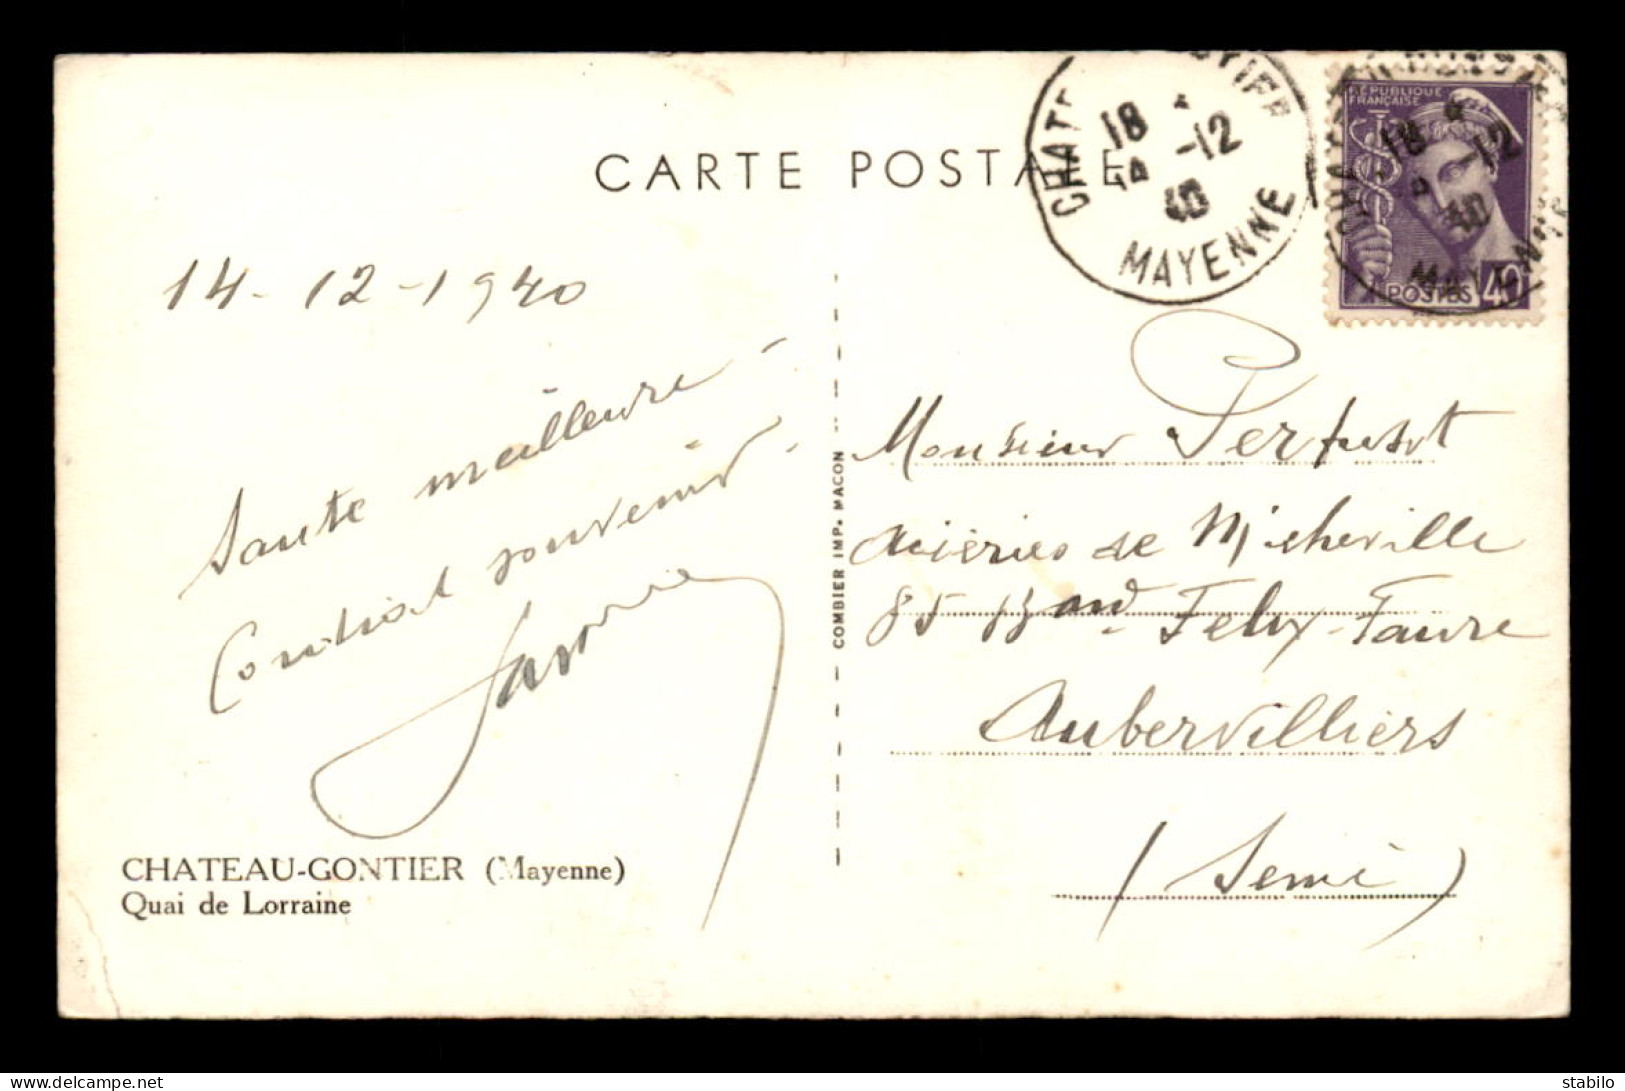 CARTE POSTALE
CHATEAU-GONTIER
18
14 -12
40
MAYENNE
RÉPUBLIQUE
FRANÇAISE
POSTES 40
18
-12
40
MAYENNE
14-12-1940
Sante meilleure -
Cordial souvenir -
COMBIER IMP. MACON
Monsieur
Acieries de Micheville
85 Bard Felix-Faure
Aubervilliers
(Seine)
CHATEAU-GONTIER (Mayenne)
Quai de Lorraine
stabilo